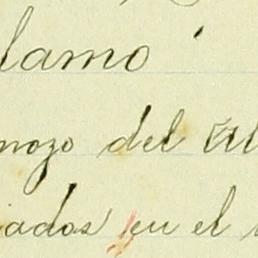 lamo
mozo del Al
iados en el